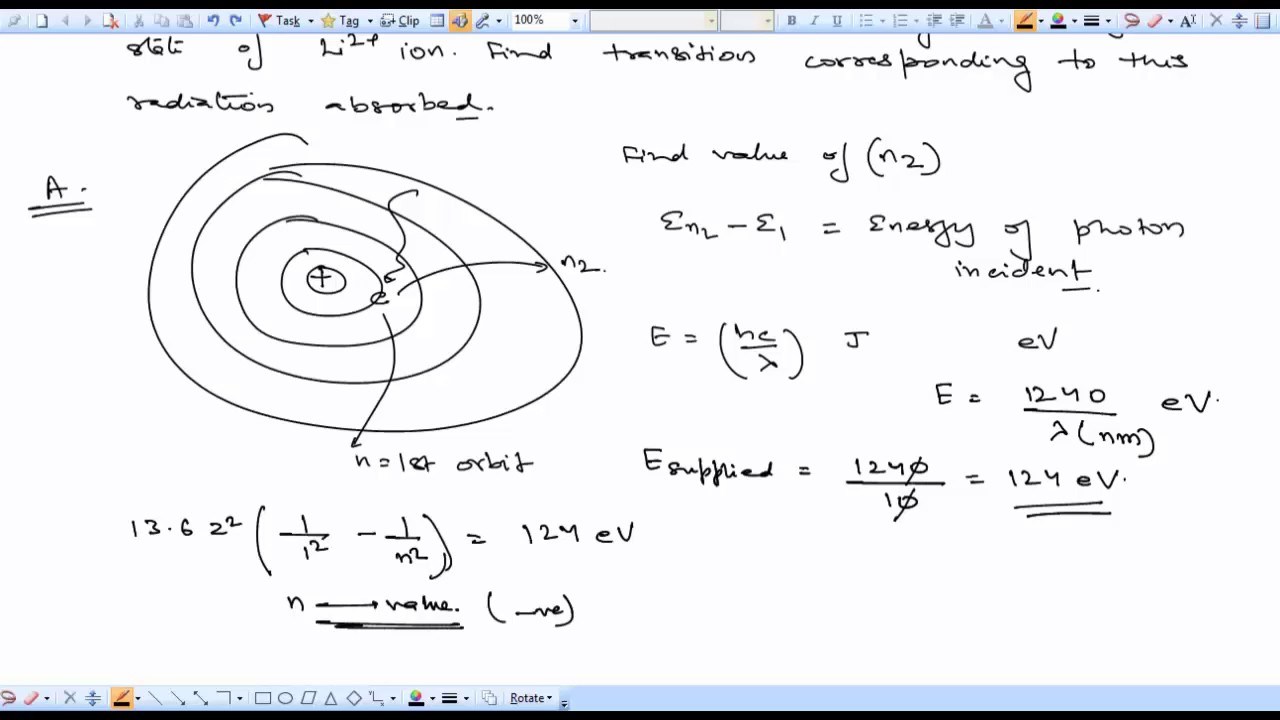 Task Tag Clip 100% B I U
state of Li²⁺ ion. Find transition corresponding to this
radiation absorbed.
A.
+
e
n2.
n = 1st orbit
Find value of (n2)
Ɛn₂ − Ɛ₁ = Energy of photon
incident.
E = (hc/λ) J eV
E = 1240/λ(nm) eV.
E supplied = 1240/10 = 124 eV.
13.6 z² (1/1² − 1/n²) = 124 eV
n → value. (−ve)
Rotate